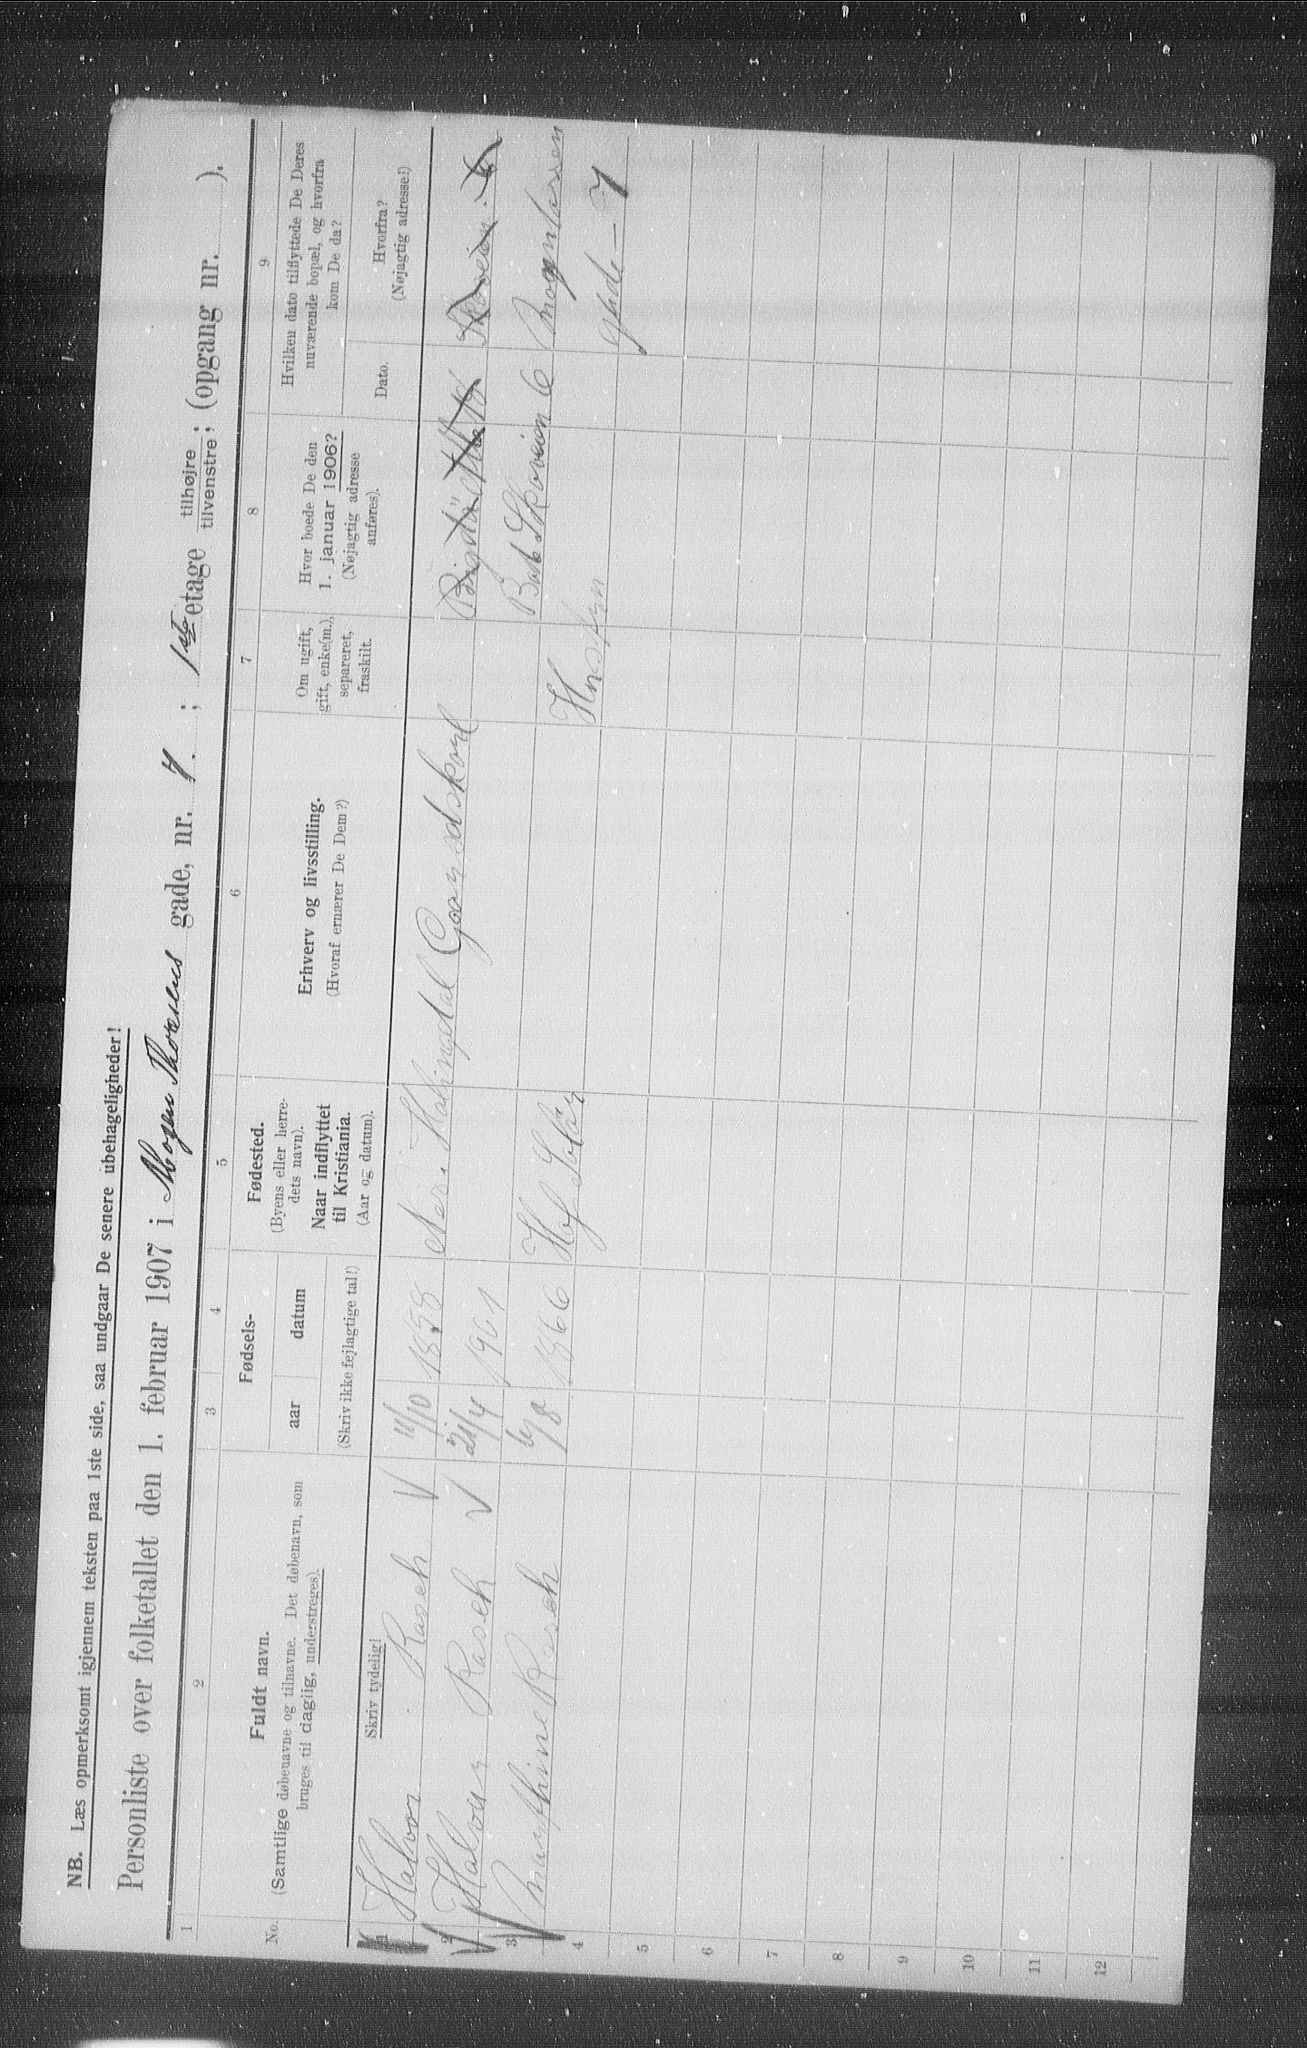 NB. Læs opmerksomt igjennem teksten paa 1ste side, saa undgaar De senere ubehageligheder!
Personliste over folketallet den 1. februar 1907 i Mogens Thorsens gade, nr. 7. ; 1ste etage tilhøjre tilvenstre; (opgang nr. ).
1 2 3 4 5 6 7 8 9
No.
Fuldt navn.
(Samtlige døbenavne og tilnavne. Det døbenavn, som
bruges til daglig, understreges).
Skriv tydelig!
Fødsels-
aar datum
(Skriv ikke fejlagtige tal!)
Fødested.
(Byens eller herre-
dets navn).
Naar indflyttet
til Kristiania.
(Aar og datum).
Erhverv og livsstilling.
(Hvoraf ernærer De Dem?)
Om ugift,
gift, enke(m.),
separeret,
fraskilt.
Hvor boede De den
1. januar 1906?
(Nøjagtig adresse
anføres).
Hvilken dato tilflyttede De Deres
nuværende bopæl, og hvorfra
kom De da?
Dato.
Hvorfra?
(Nøjagtig adresse!)
1 Halvor Rasch 11/10 1858 Hallingdal Gaardskarl
2 Halvur Rasch 21/4 1901
3 Rasch 6/8 1866 Hof Solør Skoveien 6
4 Hustru gade - 7
5
6
7
8
9
10
11
12